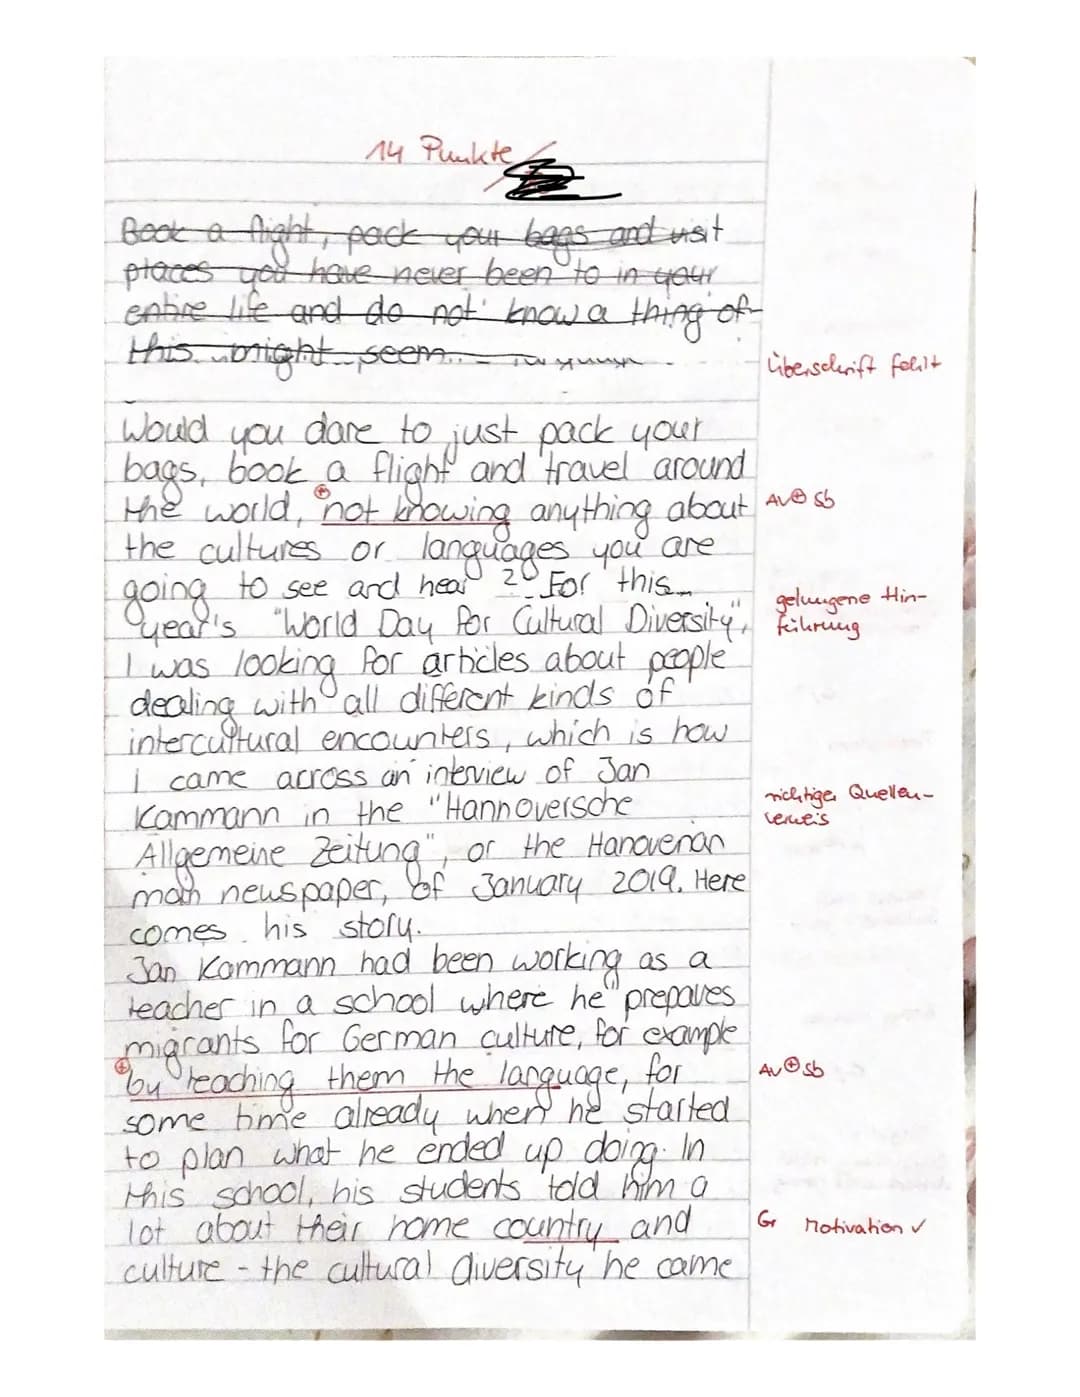 14 Punkte
Book a flight, pack your bags and visit
places you have never been to in your
entire life and do not know a thing of
this might seem...
Überschrift fehlt
Would you dare to just pack your
bags, book a flight and travel around
the world, not knowing anything about
AV⊕ Sb
the cultures or languages you are
going to see and hear ? For this
gelungene Hin-
year's "World Day for Cultural Diversity",
führung
I was looking for articles about people
dealing with all different kinds of
intercultural encounters, which is how
I came across an interview of Jan
richtiger Quellen-
Kammann in the "Hannoversche
verweis
Allgemeine Zeitung", or the Hanoverian
main newspaper, of January 2019. Here
comes his story.
Jan Kammann had been working as a
teacher in a school where he prepares
migrants for German culture, for example
⊕
by teaching them the language, for
AV⊕ Sb
some time already when he started
to plan what he ended up doing. In
this school, his students told him a
lot about their home country and
Gr Motivation ✓
culture - the cultural diversity he came